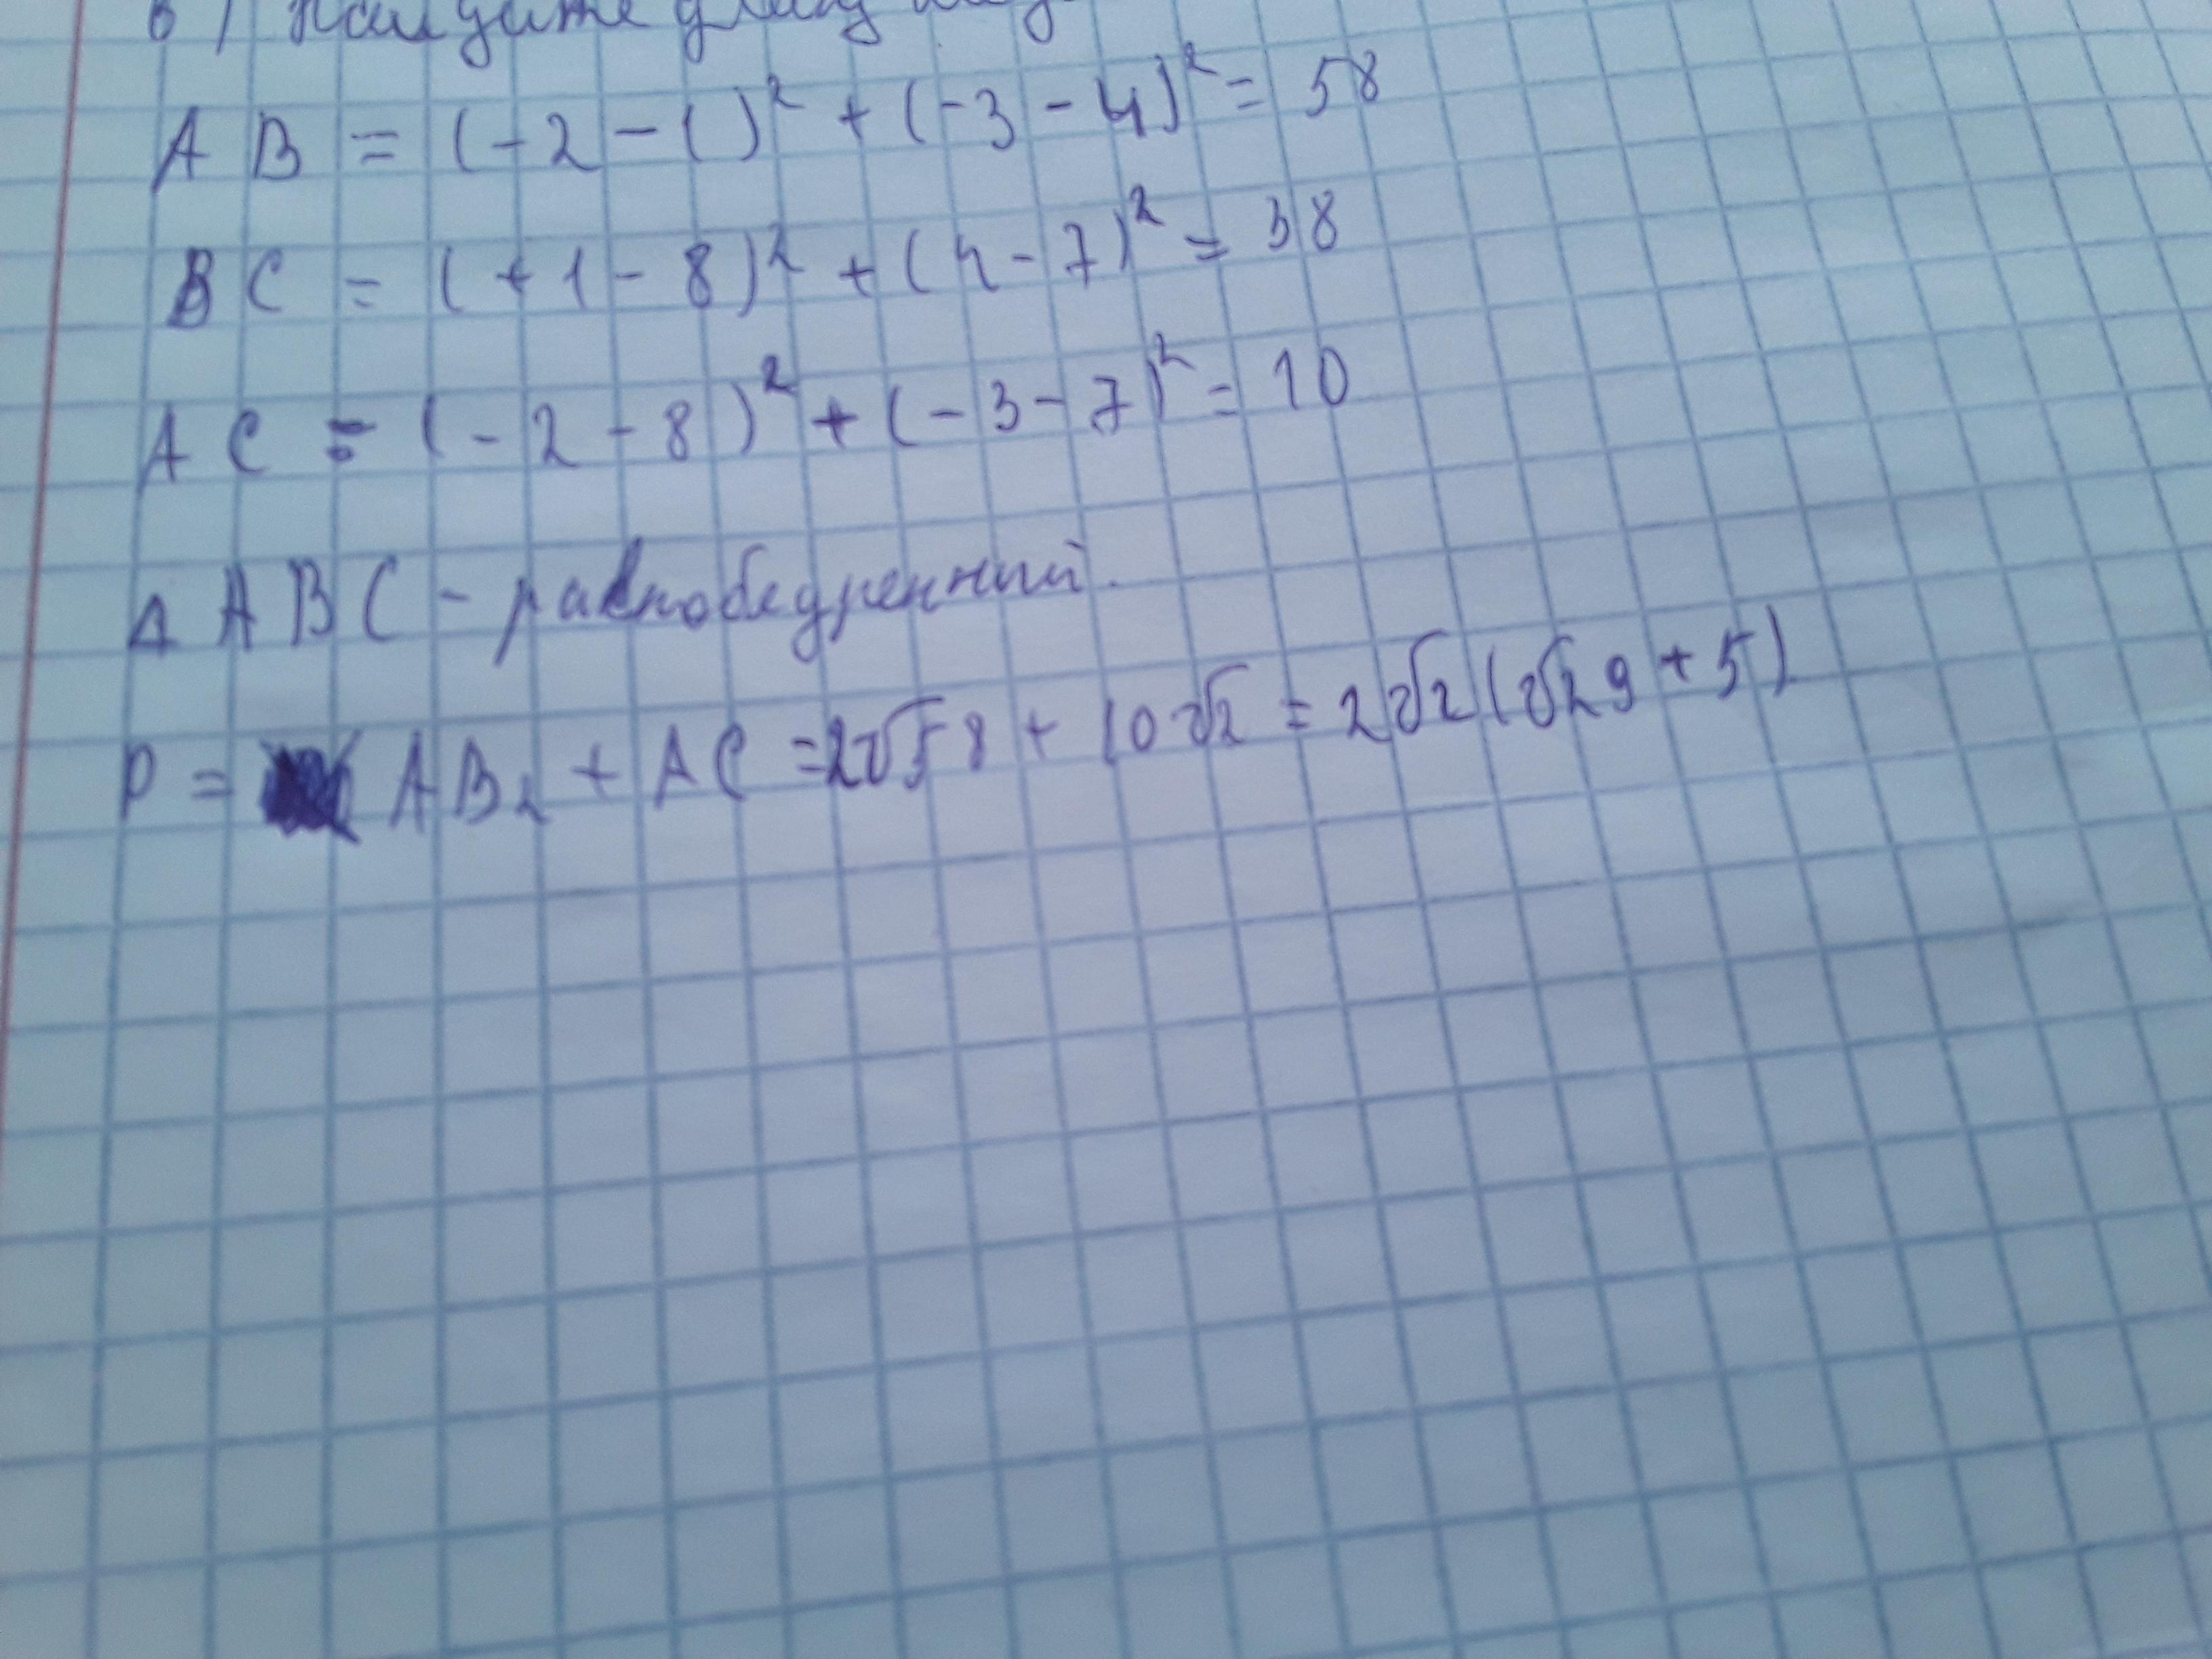 в) Найдите
AB = (-2 - 1)² + (-3 - 4)² = 58
BC = (+1 - 8)² + (4 - 7)² = 58
AC = (-2 - 8)² + (-3 - 7)² = 10
Δ ABC - равнобедренный.
P = AB2 + AC = 2√58 + 10√2 = 2√2(√29 + 5)